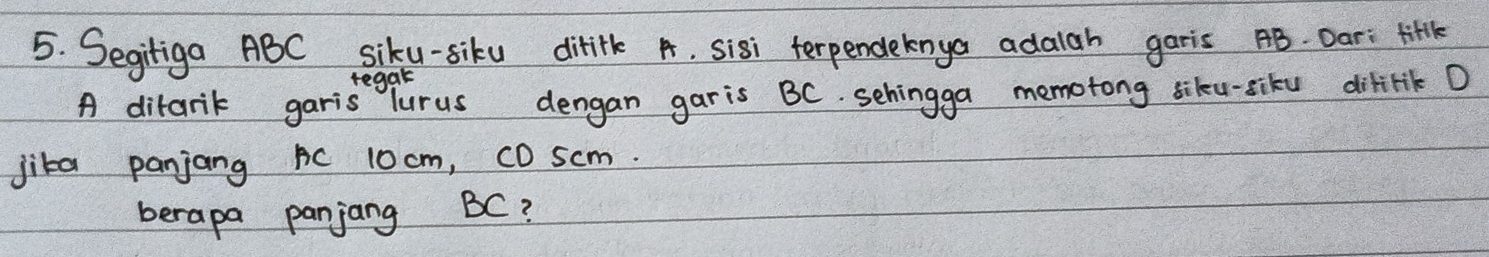 5. Segitiga ABC siku-siku dititk A. Sisi terpendeknya adalah garis AB. Dari titik
A ditarik garis tegak lurus dengan garis BC. sehingga memotong siku-siku dititik D
jika panjang AC 10 cm, CD 5cm.
berapa panjang BC?